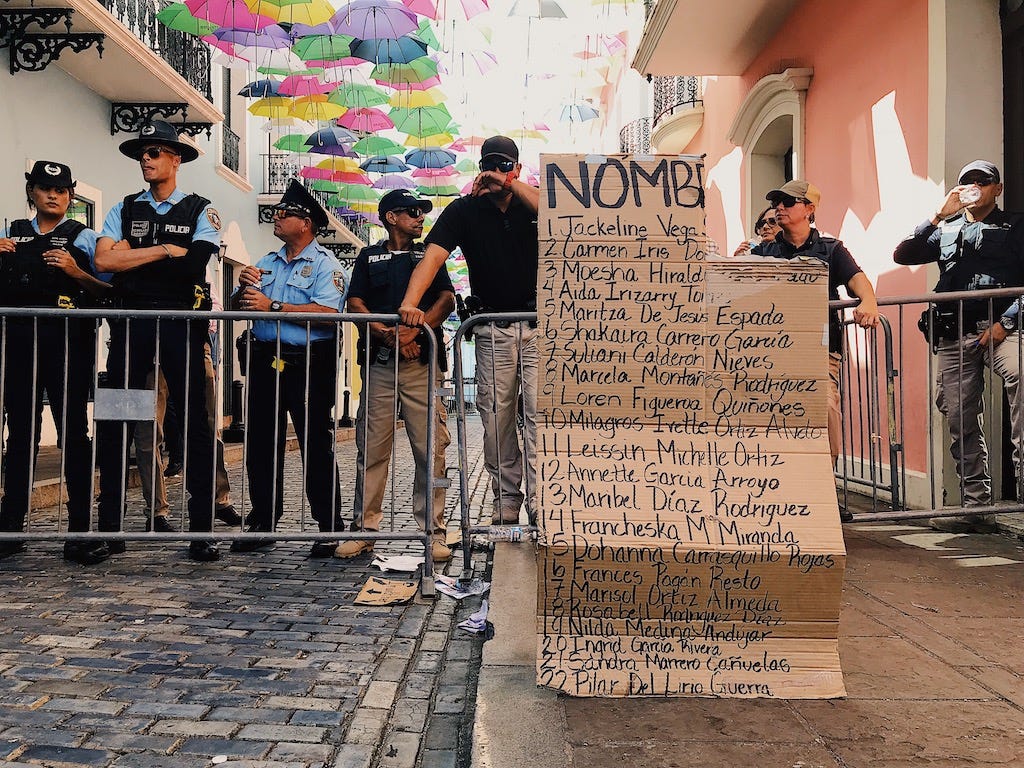 POLICIA
POLICIA
NOMB
1. Jackeline Vega
2 Carmen Iris Do
3 Moesha Hirald
4 Aida Irizarry Tor
5 Maritza De Jesus Espada
6 Shakaira Carrero García
7 Suliani Calderon Nieves
8 Marcela Montañes Rodríguez
9 Loren Figueroa Quiñones
10 Milagros Ivette Ortiz Alvelo
11 Leissin Michelle Ortiz
12 Annette Garcia Arroyo
13 Maribel Díaz Rodriguez
14 Francheska M Miranda
15 Dohanna Carrasquillo Rojas
16 Frances Pagan Resto
17 Marisol Ortiz Almeda
18 Rosabell Rodriguez Díaz
19 Nilda Medina Andujar
20 Ingrid García Rivera
21 Sandra Marrero Cañuelas
22 Pilar Del Lirio Guerra